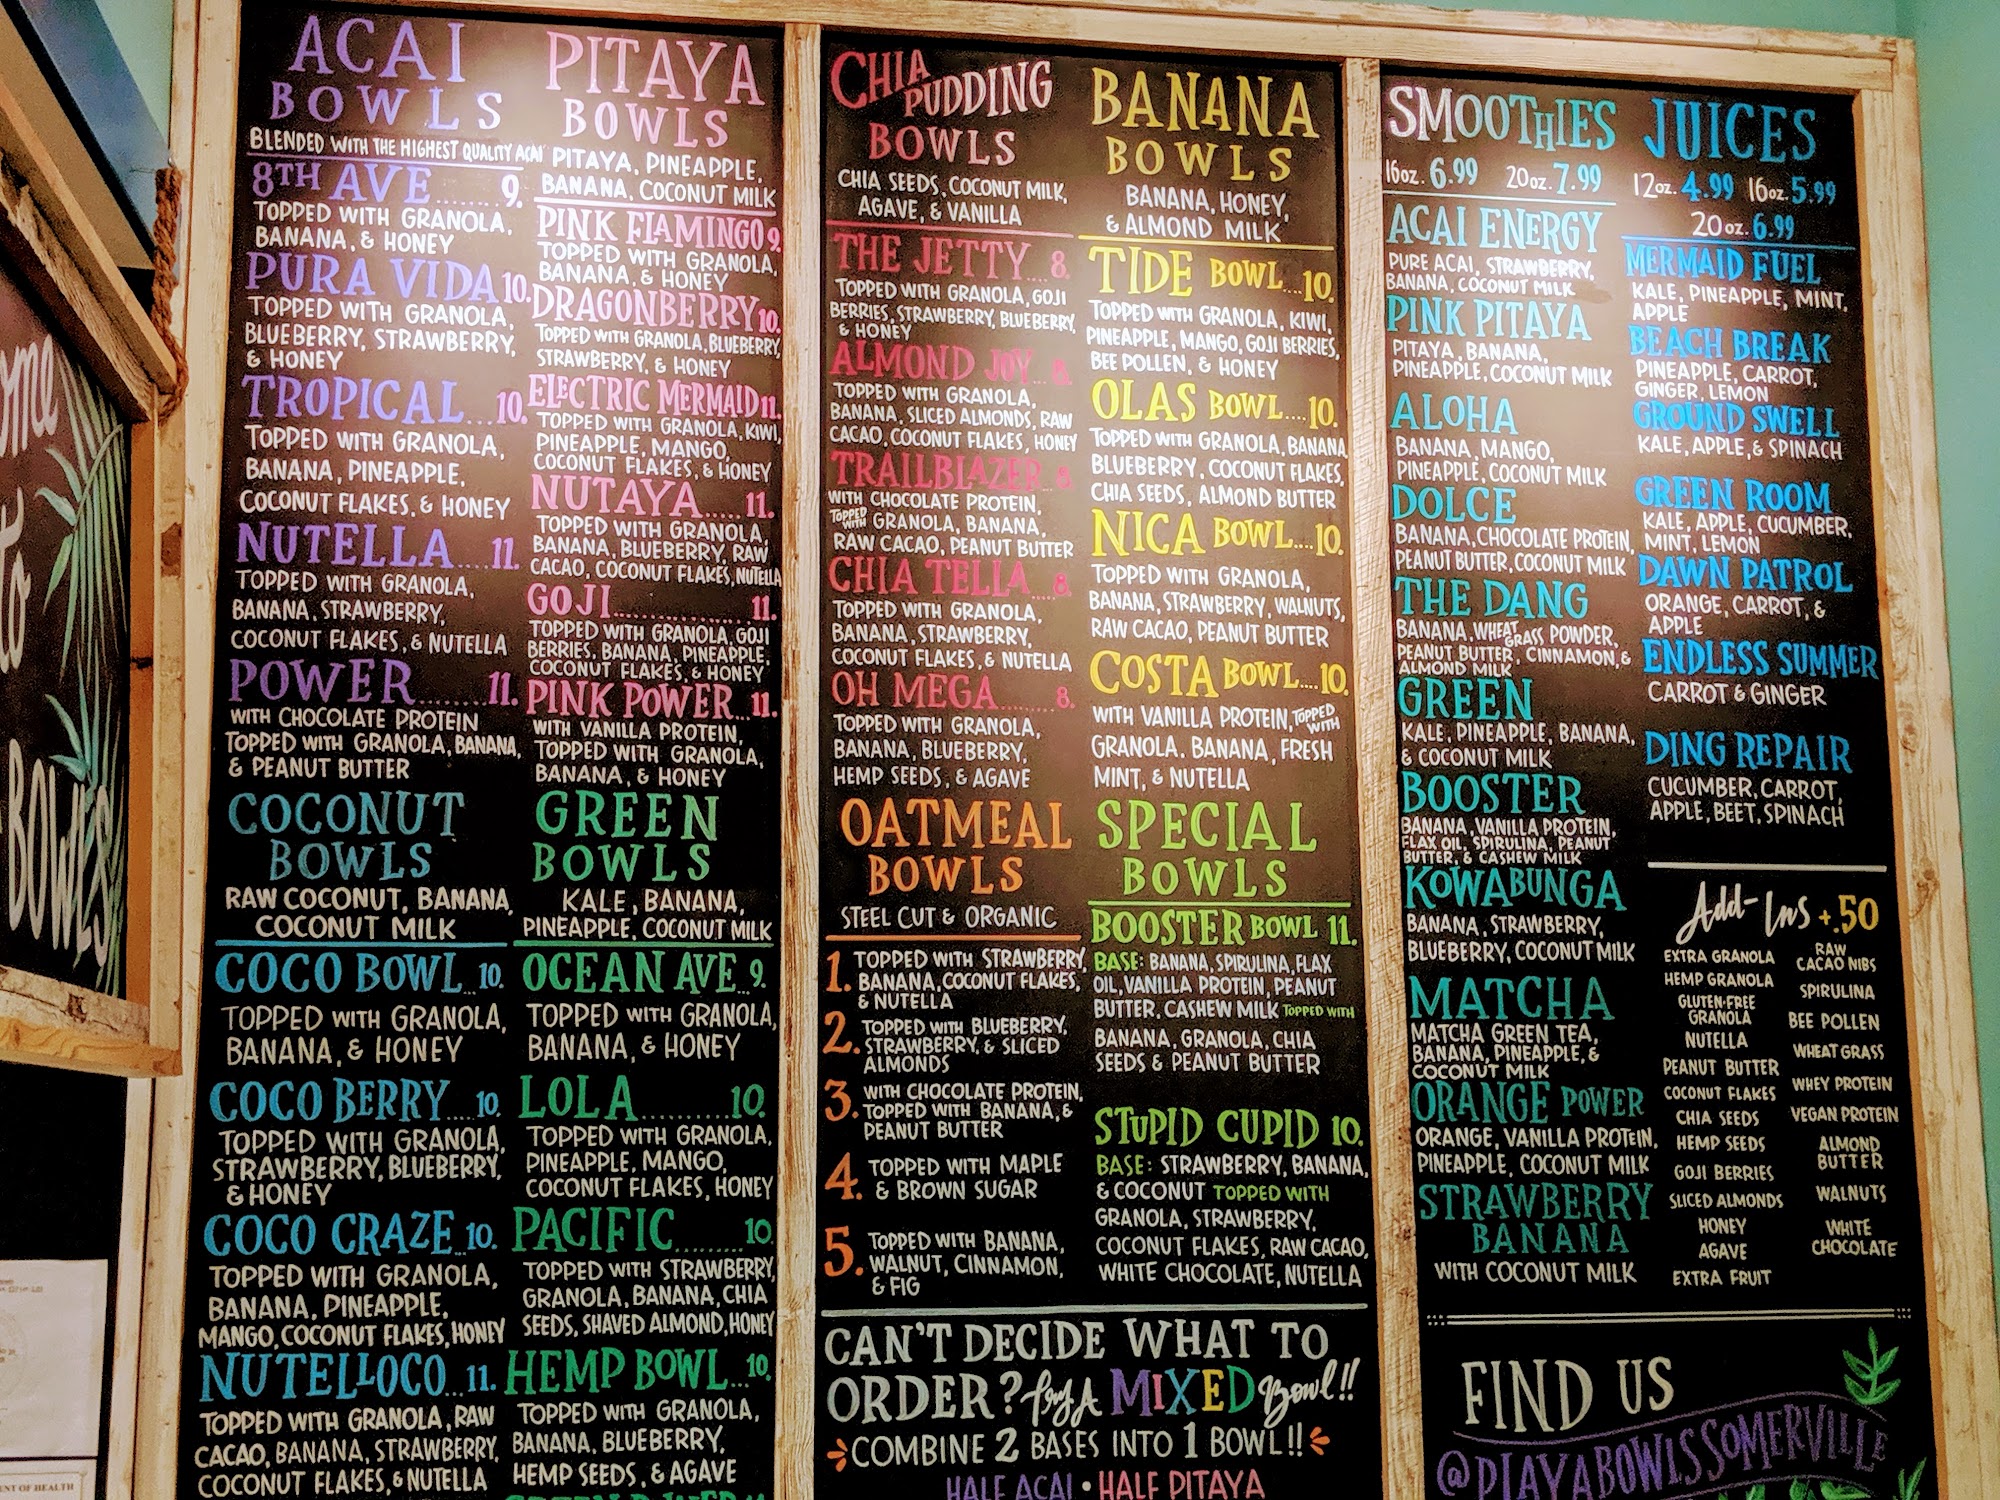 ACAI
BOWLS
BLENDED WITH THE HIGHEST QUALITY ACAI
8TH AVE........9.
TOPPED WITH GRANOLA,
BANANA, & HONEY
PURA VIDA 10.
TOPPED WITH GRANOLA,
BLUEBERRY, STRAWBERRY,
& HONEY
TROPICAL...10.
TOPPED WITH GRANOLA,
BANANA, PINEAPPLE,
COCONUT FLAKES, & HONEY
NUTELLA.....11.
TOPPED WITH GRANOLA,
BANANA, STRAWBERRY,
COCONUT FLAKES, & NUTELLA
POWER........11.
WITH CHOCOLATE PROTEIN
TOPPED WITH GRANOLA, BANANA,
& PEANUT BUTTER
COCONUT
BOWLS
RAW COCONUT, BANANA,
COCONUT MILK
COCO BOWL..10.
TOPPED WITH GRANOLA,
BANANA, & HONEY
COCO BERRY....10.
TOPPED WITH GRANOLA,
STRAWBERRY, BLUEBERRY,
& HONEY
COCO CRAZE..10.
TOPPED WITH GRANOLA,
BANANA, PINEAPPLE,
MANGO, COCONUT FLAKES, HONEY
NUTELLOCO...11.
TOPPED WITH GRANOLA, RAW
CACAO, BANANA, STRAWBERRY,
COCONUT FLAKES, & NUTELLA
PITAYA
BOWLS
PITAYA, PINEAPPLE,
BANANA, COCONUT MILK
PINK FLAMINGO 9.
TOPPED WITH GRANOLA,
BANANA, & HONEY
DRAGONBERRY 10.
TOPPED WITH GRANOLA, BLUEBERRY,
STRAWBERRY, & HONEY
ELECTRIC MERMAID 11.
TOPPED WITH GRANOLA, KIWI,
PINEAPPLE, MANGO,
COCONUT FLAKES, & HONEY
NUTAYA.....11.
TOPPED WITH GRANOLA,
BANANA, BLUEBERRY, RAW
CACAO, COCONUT FLAKES, NUTELLA
GOJI..............11.
TOPPED WITH GRANOLA, GOJI
BERRIES, BANANA, PINEAPPLE,
COCONUT FLAKES, & HONEY
PINK POWER...11.
WITH VANILLA PROTEIN,
TOPPED WITH GRANOLA,
BANANA, & HONEY
GREEN
BOWLS
KALE, BANANA,
PINEAPPLE, COCONUT MILK
OCEAN AVE..9.
TOPPED WITH GRANOLA,
BANANA, & HONEY
LOLA..........10.
TOPPED WITH GRANOLA,
PINEAPPLE, MANGO,
COCONUT FLAKES, HONEY
PACIFIC.........10.
TOPPED WITH STRAWBERRY,
GRANOLA, BANANA, CHIA
SEEDS, SHAVED ALMOND, HONEY
HEMP BOWL...10.
TOPPED WITH GRANOLA,
BANANA, BLUEBERRY,
HEMP SEEDS, & AGAVE
CHIA
PUDDING
BOWLS
CHIA SEEDS, COCONUT MILK,
AGAVE, & VANILLA
THE JETTY...8.
TOPPED WITH GRANOLA, GOJI
BERRIES, STRAWBERRY, BLUEBERRY,
& HONEY
ALMOND JOY..8.
TOPPED WITH GRANOLA,
BANANA, SLICED ALMONDS, RAW
CACAO, COCONUT FLAKES, HONEY
TRAILBLAZER.8.
WITH CHOCOLATE PROTEIN,
TOPPED WITH GRANOLA, BANANA,
RAW CACAO, PEANUT BUTTER
CHIA TELLA...8.
TOPPED WITH GRANOLA,
BANANA, STRAWBERRY,
COCONUT FLAKES, & NUTELLA
OH MEGA........8.
TOPPED WITH GRANOLA,
BANANA, BLUEBERRY,
HEMP SEEDS, & AGAVE
OATMEAL
BOWLS
STEEL CUT & ORGANIC
1. TOPPED WITH STRAWBERRY,
BANANA, COCONUT FLAKES,
& NUTELLA
2. TOPPED WITH BLUEBERRY,
STRAWBERRY, & SLICED
ALMONDS
3. WITH CHOCOLATE PROTEIN,
TOPPED WITH BANANA, &
PEANUT BUTTER
4. TOPPED WITH MAPLE
& BROWN SUGAR
5. TOPPED WITH BANANA,
WALNUT, CINNAMON,
& FIG
BANANA
BOWLS
BANANA, HONEY,
& ALMOND MILK
TIDE BOWL...10.
TOPPED WITH GRANOLA, KIWI,
PINEAPPLE, MANGO, GOJI BERRIES,
BEE POLLEN, & HONEY
OLAS BOWL....10.
TOPPED WITH GRANOLA, BANANA,
BLUEBERRY, COCONUT FLAKES,
CHIA SEEDS, ALMOND BUTTER
NICA BOWL....10.
TOPPED WITH GRANOLA,
BANANA, STRAWBERRY, WALNUTS,
RAW CACAO, PEANUT BUTTER
COSTA BOWL....10.
WITH VANILLA PROTEIN, TOPPED WITH
GRANOLA. BANANA, FRESH
MINT, & NUTELLA
SPECIAL
BOWLS
BOOSTER BOWL 11.
BASE: BANANA, SPIRULINA, FLAX
OIL, VANILLA PROTEIN, PEANUT
BUTTER, CASHEW MILK TOPPED WITH
BANANA, GRANOLA, CHIA
SEEDS & PEANUT BUTTER
STUPID CUPID 10.
BASE: STRAWBERRY, BANANA,
& COCONUT TOPPED WITH
GRANOLA, STRAWBERRY,
COCONUT FLAKES, RAW CACAO,
WHITE CHOCOLATE, NUTELLA
CAN'T DECIDE WHAT TO
ORDER? try A MIXED Bowl!!
COMBINE 2 BASES INTO 1 BOWL!!
HALF ACAI • HALF PITAYA
SMOOTHIES
16oz. 6.99 20oz. 7.99
ACAI ENERGY
PURE ACAI, STRAWBERRY,
BANANA, COCONUT MILK
PINK PITAYA
PITAYA, BANANA,
PINEAPPLE, COCONUT MILK
ALOHA
BANANA, MANGO,
PINEAPPLE, COCONUT MILK
DOLCE
BANANA, CHOCOLATE PROTEIN,
PEANUT BUTTER, COCONUT MILK
THE DANG
BANANA, WHEAT GRASS POWDER,
PEANUT BUTTER, CINNAMON, &
ALMOND MILK
GREEN
KALE, PINEAPPLE, BANANA,
& COCONUT MILK
BOOSTER
BANANA, VANILLA PROTEIN,
FLAX OIL, SPIRULINA, PEANUT
BUTTER, & CASHEW MILK
KOWABUNGA
BANANA, STRAWBERRY,
BLUEBERRY, COCONUT MILK
MATCHA
MATCHA GREEN TEA,
BANANA, PINEAPPLE, &
COCONUT MILK
ORANGE POWER
ORANGE, VANILLA PROTEIN,
PINEAPPLE, COCONUT MILK
STRAWBERRY
BANANA
WITH COCONUT MILK
JUICES
12oz. 4.99 16oz. 5.99
20oz. 6.99
MERMAID FUEL
KALE, PINEAPPLE, MINT,
APPLE
BEACH BREAK
PINEAPPLE, CARROT,
GINGER, LEMON
GROUND SWELL
KALE, APPLE, & SPINACH
GREEN ROOM
KALE, APPLE, CUCUMBER,
MINT, LEMON
DAWN PATROL
ORANGE, CARROT, &
APPLE
ENDLESS SUMMER
CARROT & GINGER
DING REPAIR
CUCUMBER, CARROT,
APPLE, BEET, SPINACH
Add-Ins +.50
EXTRA GRANOLA
HEMP GRANOLA
GLUTEN-FREE
GRANOLA
NUTELLA
PEANUT BUTTER
COCONUT FLAKES
CHIA SEEDS
HEMP SEEDS
GOJI BERRIES
SLICED ALMONDS
HONEY
AGAVE
EXTRA FRUIT
RAW
CACAO NIBS
SPIRULINA
BEE POLLEN
WHEATGRASS
WHEY PROTEIN
VEGAN PROTEIN
ALMOND
BUTTER
WALNUTS
WHITE
CHOCOLATE
FIND US
@PLAYABOWLSSOMERVILLE
to
BOWLS